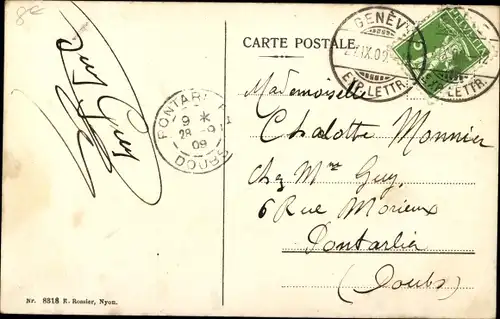 CARTE POSTALE
GENÈV
IX.09
EXP. LETTR.
EXP. LETTR.
5
PONTARLI
9 *
28 -9
09
DOUBS
Mademoiselle
Chalotte Monnier
chez Mme Guy,
6 Rue Morieux
Pontarlia
(Doubs)
Nr. 8318 E. Rossier, Nyon.